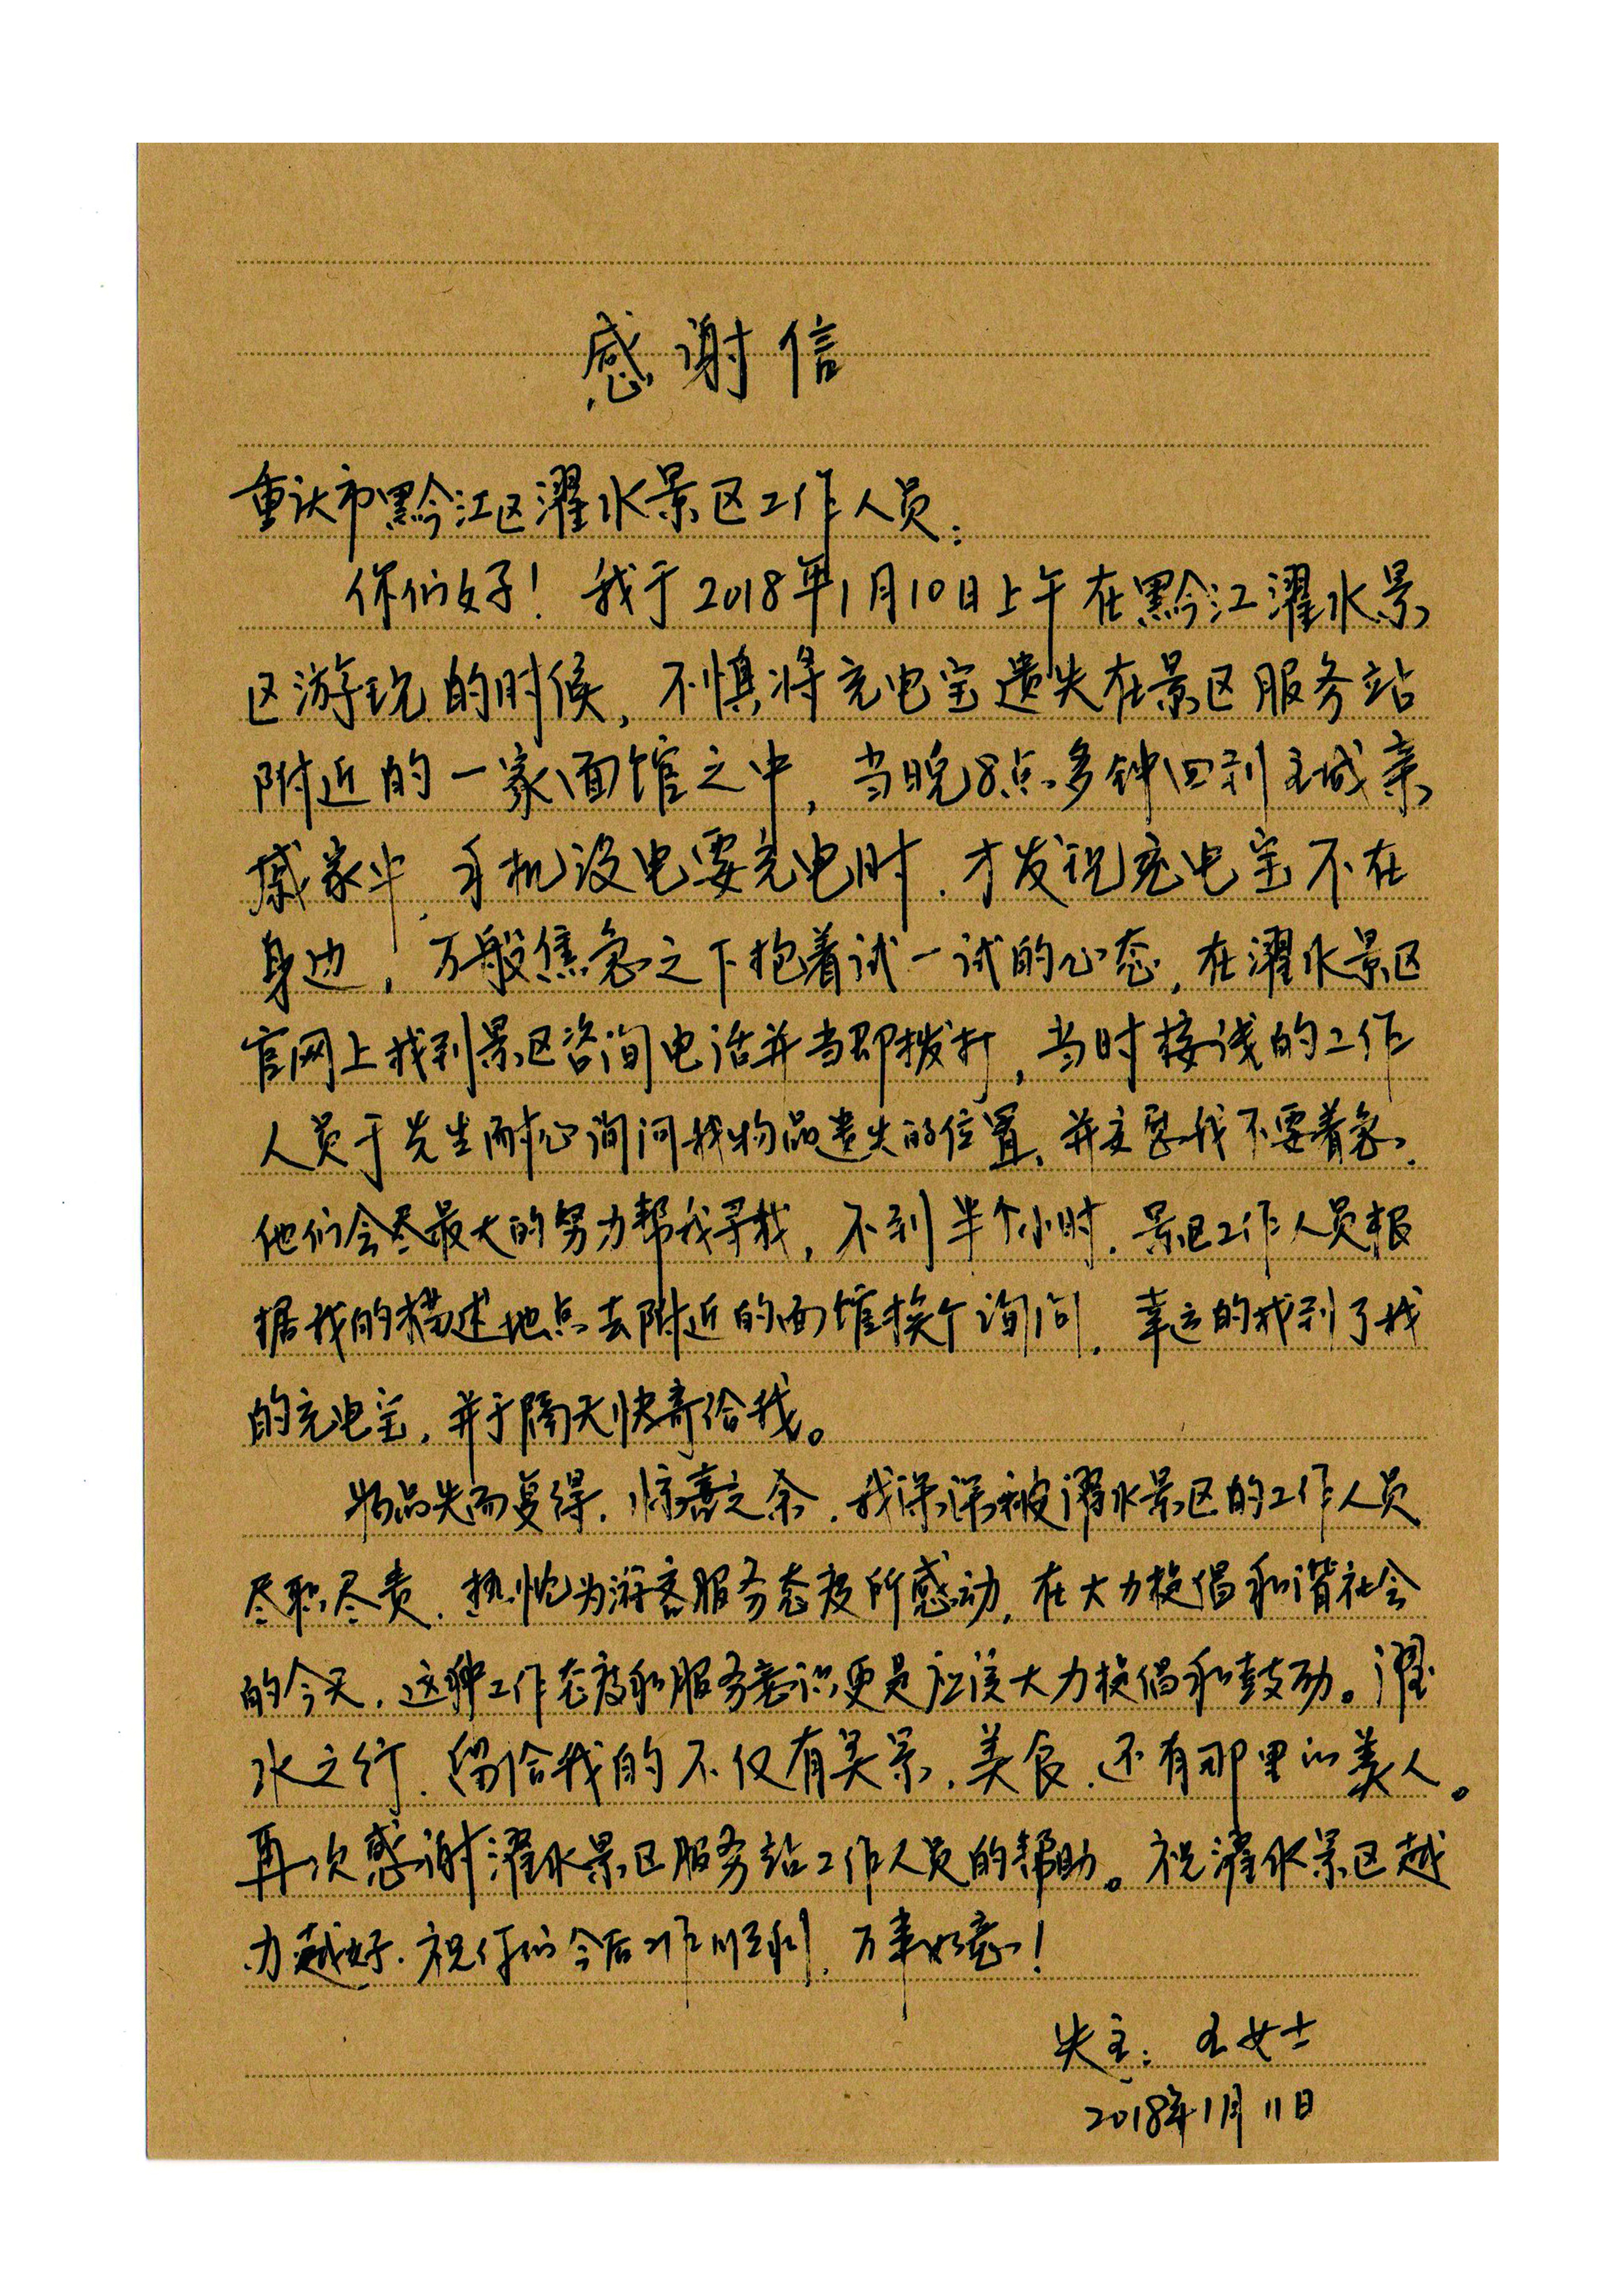 感谢信
重庆市黔江区濯水景区工作人员：
你们好！我于2018年1月10日上午在黔江濯水景
区游玩的时候，不慎将充电宝遗失在景区服务站
附近的一家面馆之中，当晚8点多钟回到主城亲
戚家中，手机没电要充电时，才发现充电宝不在
身边，万般焦急之下抱着试一试的心态，在濯水景区
官网上找到景区咨询电话并当即拨打，当时接线的工作
人员于先生耐心询问我物品遗失的位置，并安慰我不要着急，
他们会尽最大的努力帮我寻找，不到半个小时，景区工作人员根
据我的描述地点去附近的面馆挨个询问，幸运的找到了我
的充电宝，并于隔天快寄给我。
物品失而复得，惊喜之余，我深深被濯水景区的工作人员
尽职尽责，热忱为游客服务态度所感动，在大力提倡和谐社会
的今天，这种工作态度和服务意识更是应该大力提倡和鼓励。濯
水之行，留给我的不仅有美景，美食，还有那里的美人。
再次感谢濯水景区服务站工作人员的帮助。祝濯水景区越
办越好，祝你们今后工作顺利，万事如意！
失主：王女士
2018年1月11日